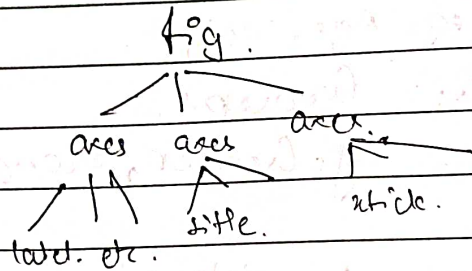 fig.
axes axes axes.
label. etc. title. xtick.